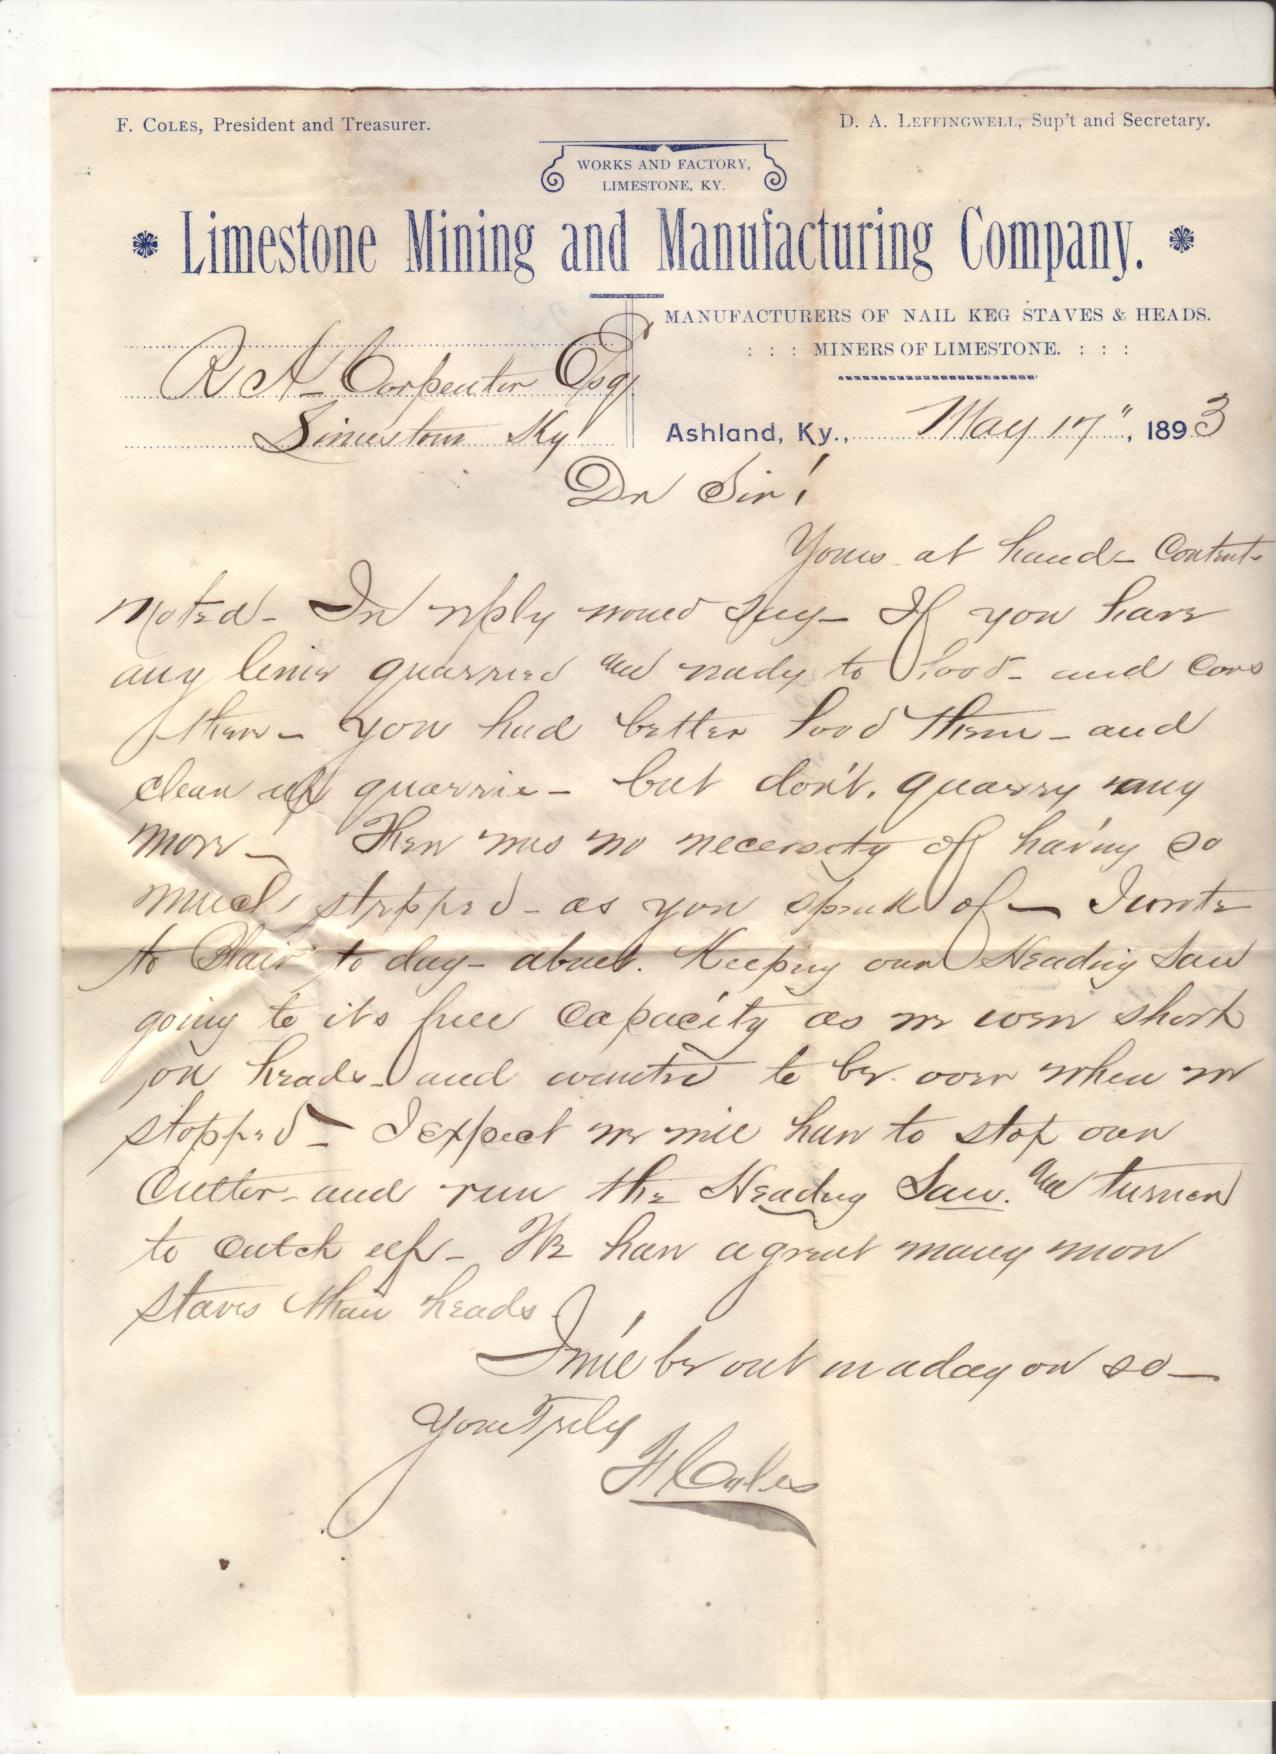 F. COLES, President and Treasurer.
D. A. LEFFINGWELL, Sup't and Secretary.
WORKS AND FACTORY,
LIMESTONE, KY.
Limestone Mining and Manufacturing Company.
MANUFACTURERS OF NAIL KEG STAVES & HEADS.
: : : MINERS OF LIMESTONE. : : :
R A Carpenter Esq
Limestone Ky
Ashland, Ky., May 17", 1893
Dr Sir!
Yours at hand - Contents
Noted - In reply would say - If you have
any lime quarried and ready to load - and cars
there - you had better load them - and
clean up quarrie - but don't. quarry any
more - There was no necessity of having so
much stripped - as you speak of - I wrote
to Blair to day - about. Keeping our Heading Saw
going to its full capacity as we were short
on heads - and wanted to be even when we
stopped - I expect we will have to stop our
Cutter - and run the Heading Saw. and turner
to catch up - We have a great many more
staves than heads -
I will be out in a day or so -
Yours Truly
F Coles